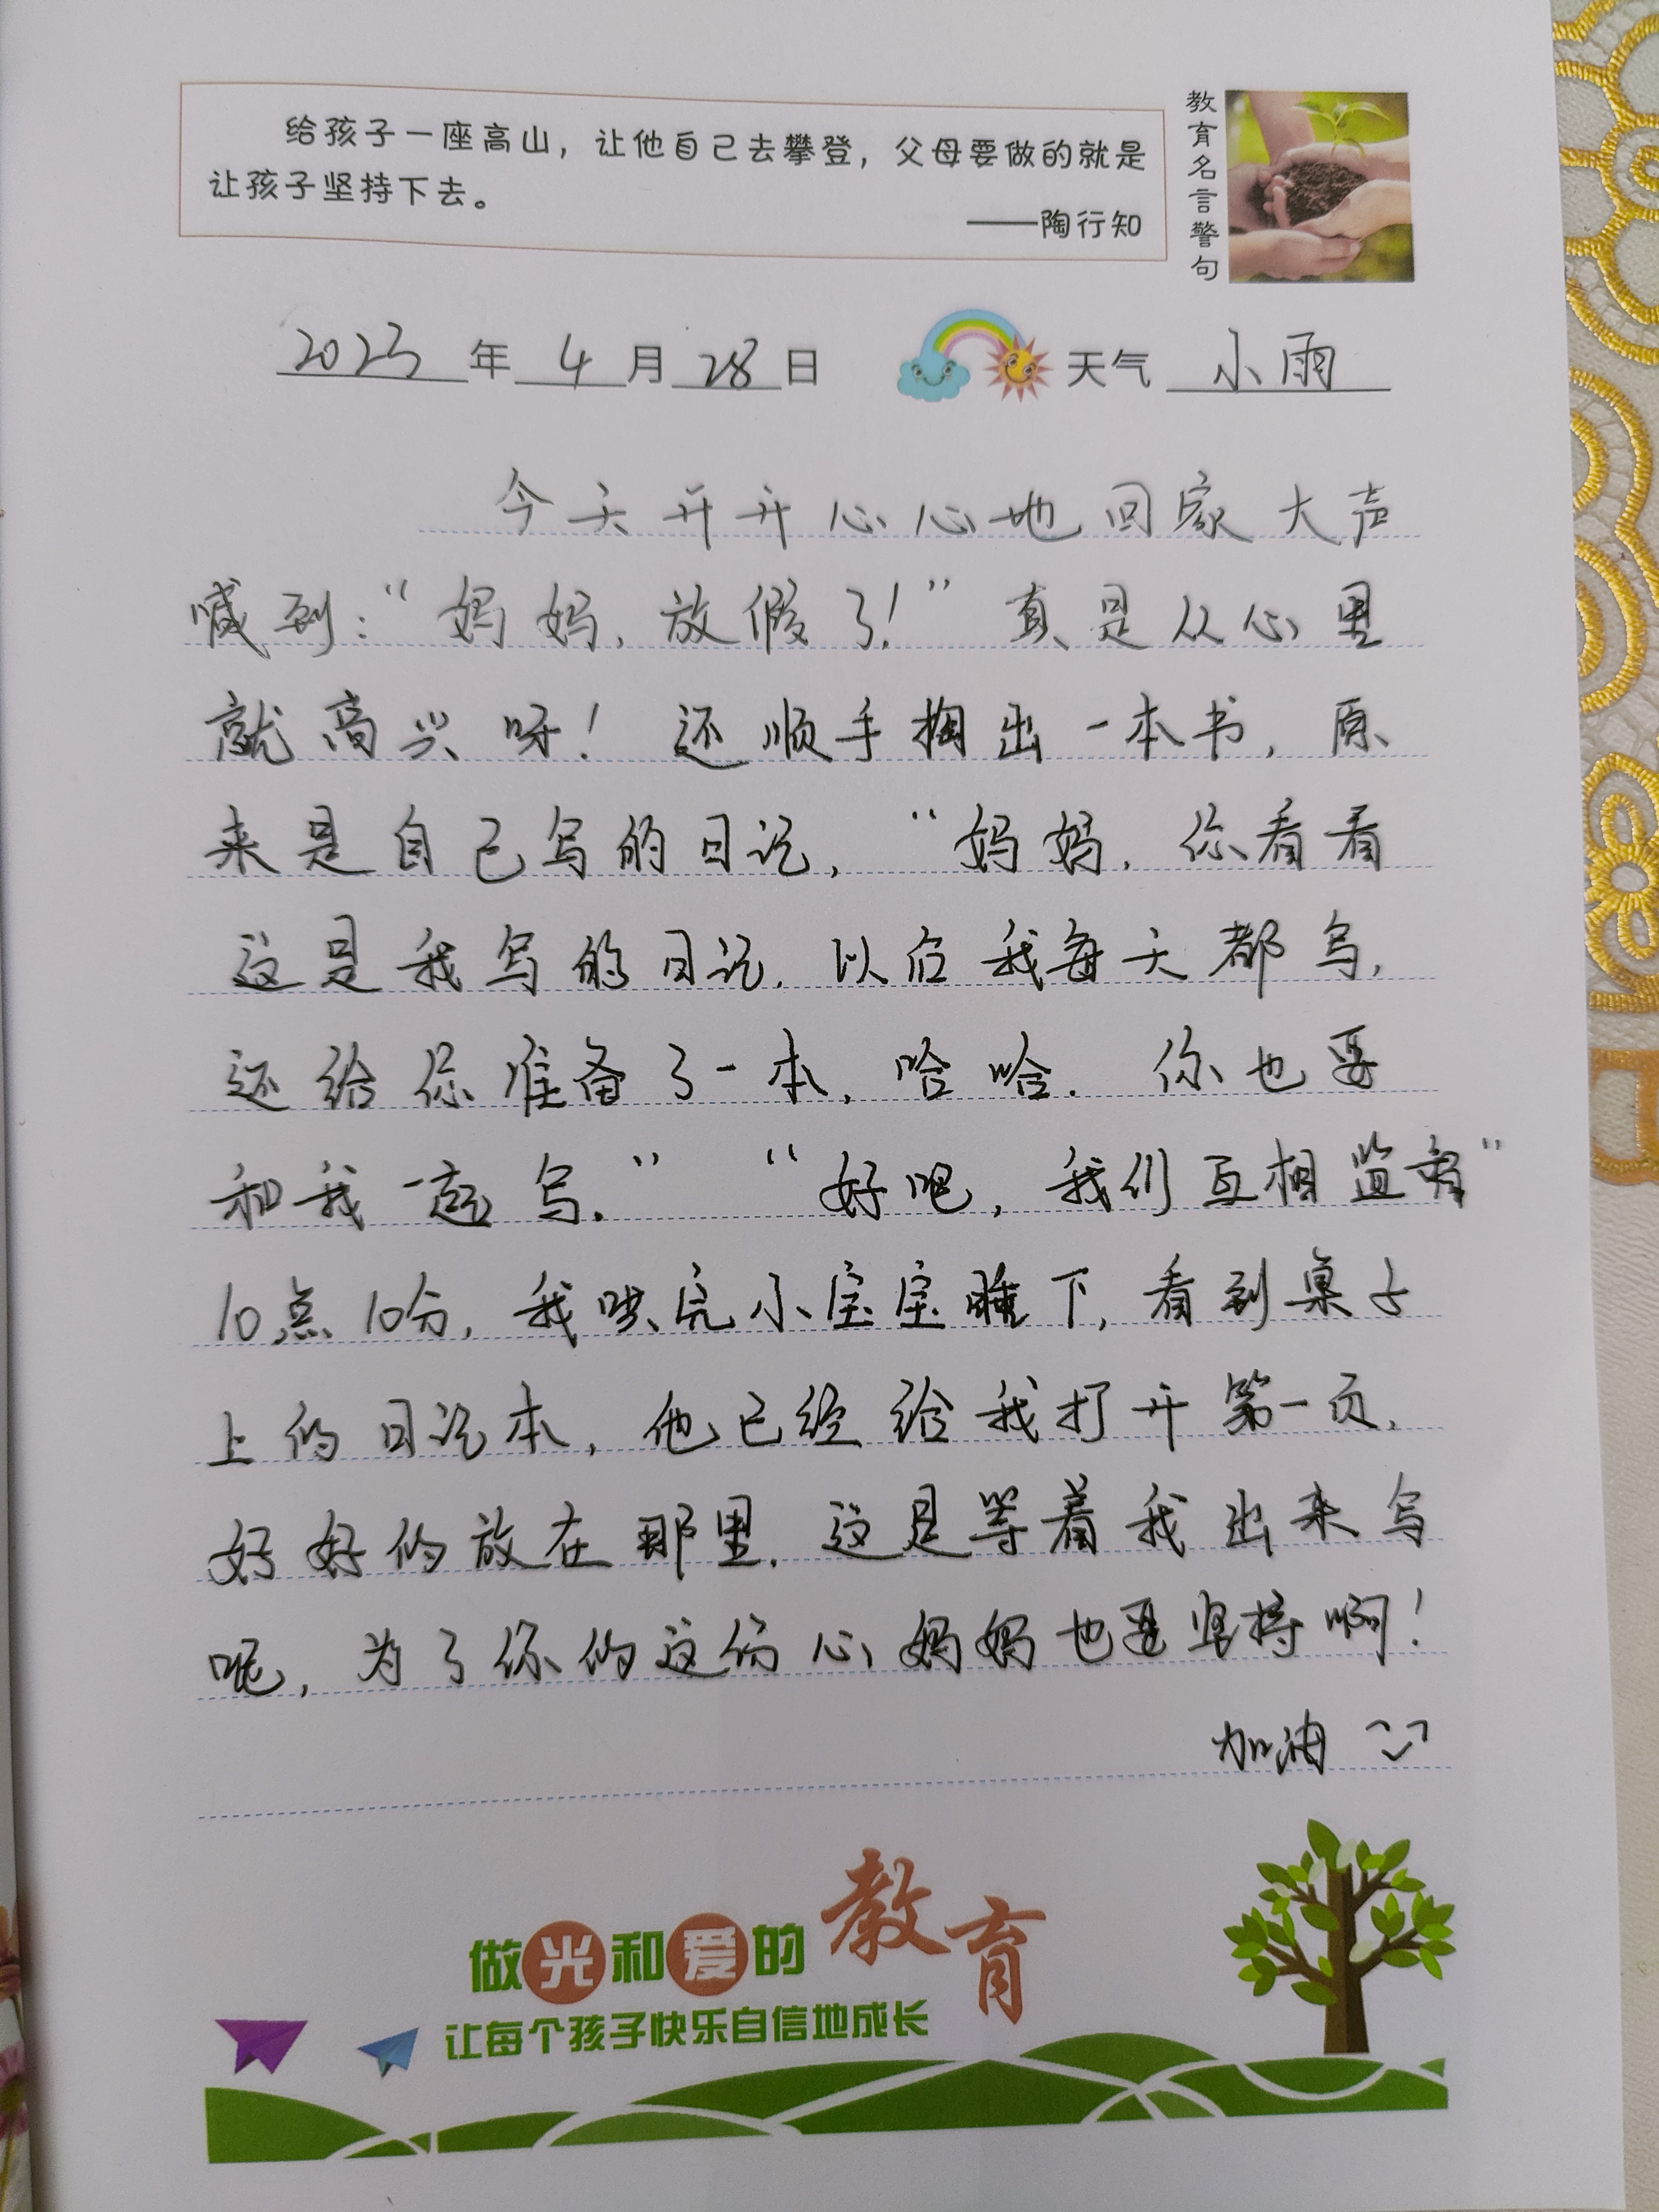 给孩子一座高山，让他自己去攀登，父母要做的就是
让孩子坚持下去。
——陶行知
教育名言警句
2023年4月28日 天气 小雨
今天开开心心地回家大声
喊到：“妈妈，放假了！”真是从心里
就高兴呀！还顺手掏出一本书，原
来是自己写的日记，“妈妈，你看看
这是我写的日记，以后我每天都写，
还给你准备了一本，哈哈．你也要
和我一起写．”“好吧，我们互相监督”
10点10分，我哄完小宝宝睡下，看到桌子
上的日记本，他已经给我打开第一页，
好好的放在那里，这是等着我出来写
呢，为了你的这份心妈妈也要坚持啊！
加油
做光和爱的教育
让每个孩子快乐自信地成长